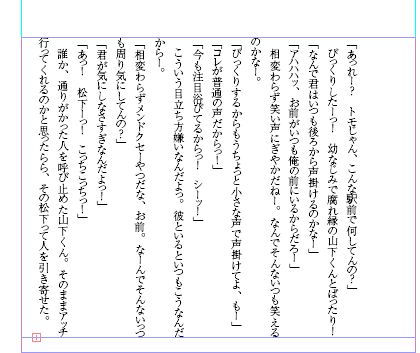 「あっれー？　トモじゃん、こんな駅前で何してんの？」
　びっくりしたーっ！　幼なじみで腐れ縁の山下くんとばったり！
「なんで君はいつも後ろから声掛けるのかなー」
「アハハッ、お前がいつも俺の前にいるからだろー」
　相変わらず笑い声にぎやかだねー。なんでそんないつも笑える
のかなー。
「びっくりするからもうちょっと小さな声で声掛けてよ、もー」
「コレが普通の声だからっ！」
「今も注目浴びてるからっ！　シーッ！」
　こういう目立ち方嫌いなんだよっ。彼といるといつもこうなんだ
からー。
「相変わらずメンドクセーやつだな、お前。なーんでそんないっつ
も周り気にしてんの？」
「君が気にしなさすぎなんだよっー」
「あっ！　松下ーっ！　こっちこっちっー！」
　誰か、通りがかった人を呼び止めた山下くん。そのままアッチ
行ってくれるのかと思ったら、その松下って人を引き寄せた。